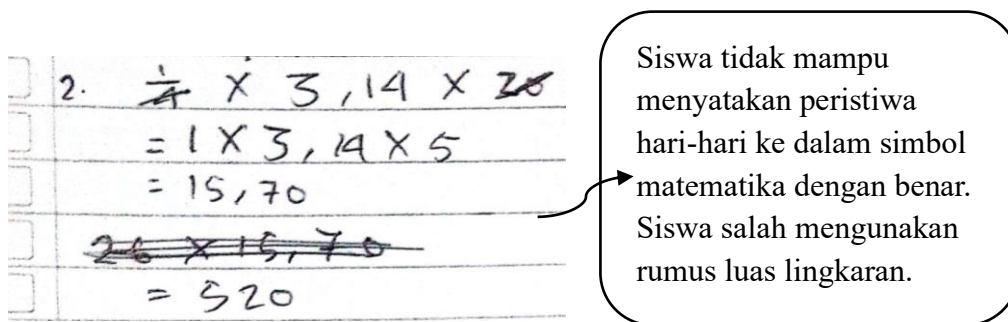 2. 1/4 × 3,14 × 20
= 1 × 3,14 × 5
= 15,70
26 × 15,70
= 520
Siswa tidak mampu
menyatakan peristiwa
hari-hari ke dalam simbol
matematika dengan benar.
Siswa salah mengunakan
rumus luas lingkaran.